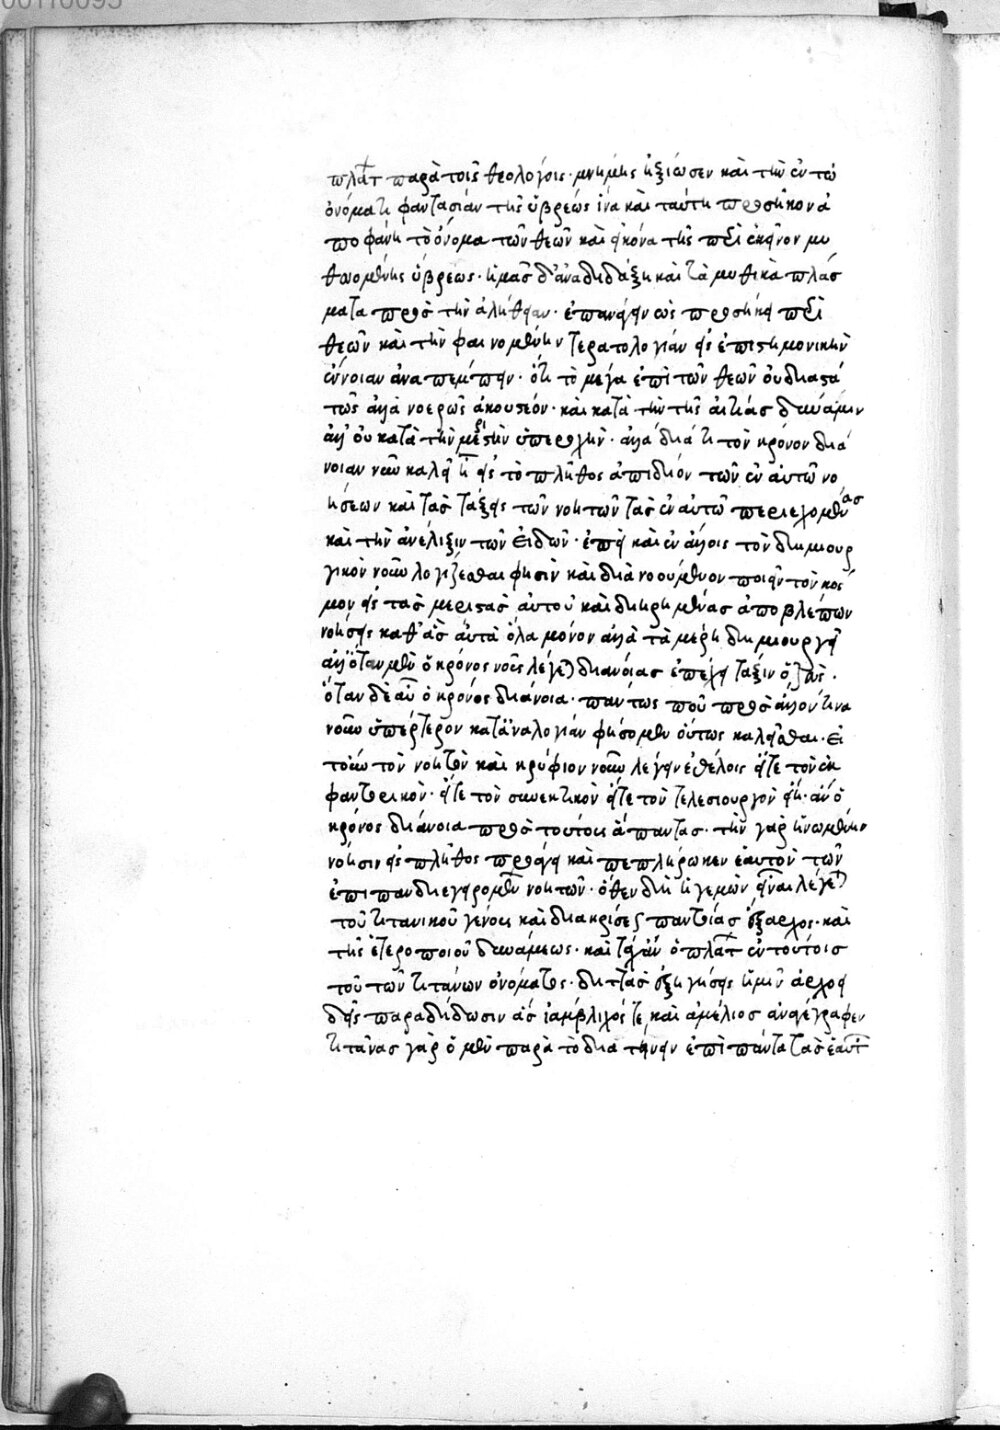 00110095
πλατ παρὰ τοῖς θεολόγοις· μνήμης ἠξίωσεν καὶ τὴν ἐν τῷ
ὀνόματι φαντασίαν τῆς ὕβρεως ἵνα καὶ ταύτη προσῆκον ἀ
ποφάνη τὸ ὄνομα τῶν θεῶν καὶ εἰκόνα τῆς περὶ ἐκεῖνον μυ
θυομένης ὕβρεως· ἡμᾶς δ' ἀναδιδάξη καὶ τὰ μυθικὰ πλάσ
ματα πρὸς τὴν ἀλήθειαν· ἐπανάγειν ὡς προσήκει περὶ
θεῶν καὶ τὴν φαινομένην τερατολογίαν εἰς ἐπιστημονικὴν
ἔννοιαν ἀναπέμπειν· ὅτι τὸ μέγα ἐπὶ τῶν θεῶν οὐ διαστά
τῶς ἀλλὰ νοερῶς ἀκουστέον· καὶ κατὰ τὴν τῆς αἰτίας δύναμιν
ἀλλ' οὐ κατὰ τὴν μεριστὴν ὑπεροχὴν· ἀλλὰ διὰ τι τὸν κρόνον διά
νοιαν νῦν καλεῖ ἢ εἰς τὸ πλῆθος ἀπιδιὸν τῶν ἐν αὐτῶ νο
ήσεων καὶ τὰς τάξεις τῶν νοητῶν τὰς ἐν αὐτῶ περιεχομένας
καὶ τὴν ἀνέλιξιν τῶν εἰδῶν· ἐπεὶ καὶ ἐν ἄλλοις τὸν δημιουρ
γικὸν νοῦν λογίζεσθαι φησὶν καὶ διανοούμενον ποιεῖν τὸν κόσ
μον εἰς τὰς μεριστὰς αὐτοῦ καὶ διῃρημένας ἀποβλέπων
νοήσεις καθ' ἃς αὐτὰ ὅλα μόνον ἀλλὰ τὰ μέρη δημιουργεῖ
ἀλλ' ὅταν μὲν ὁ κρόνος νοῦς λέγεται διανοίας ἐπέχει τάξιν ὁ ζεὺς·
ὅταν δὲ αὖ ὁ κρόνος διάνοια· πάντως που πρὸς ἄλλον τινα
νοῦν ὑπέρτερον κατ' ἀναλογίαν φήσομεν οὕτως καλεῖσθαι· εἰ
τοίνυν τὸν νοητὸν καὶ κρύφιον νοῦν λέγειν ἐθέλοις εἴτε τὸν ἐκ
φαντορικὸν· εἴτε τὸν συνεκτικὸν εἴτε τὸν τελεσιουργὸν εἴη· ἂν ὁ
κρόνος διάνοια πρὸς τούτους ἅπαντας· τὴν γὰρ ἡνωμένην
νόησιν εἰς πλῆθος προάγει καὶ πεπλήρωκεν ἑαυτὸν τῶν
ἐπιπαν διεγειρομένων νοητῶν· ὅθεν δὴ ἡγεμὼν εἶναι λέγεται
τοῦ τιτανικοῦ γένους καὶ διακρίσεως παντοίας ἔξαρχος· καὶ
τῆς ἑτεροποιοῦ δυνάμεως· καὶ ὁ πλατ ἐν τούτοις
τοῦ τῶν τιτάνων ὀνόματος· διττὰς ἐξηγήσεις ἡμῖν ἀρχοει
δεῖς παραδίδωσιν ἃς ἰάμβλιχός τε, καὶ ἀμέλιος ἀναγέγραφεν
τιτᾶνας γὰρ ὁ μὲν παρὰ τὸ διατείνειν ἐπὶ πάντα τὰς ἑαυτῶν